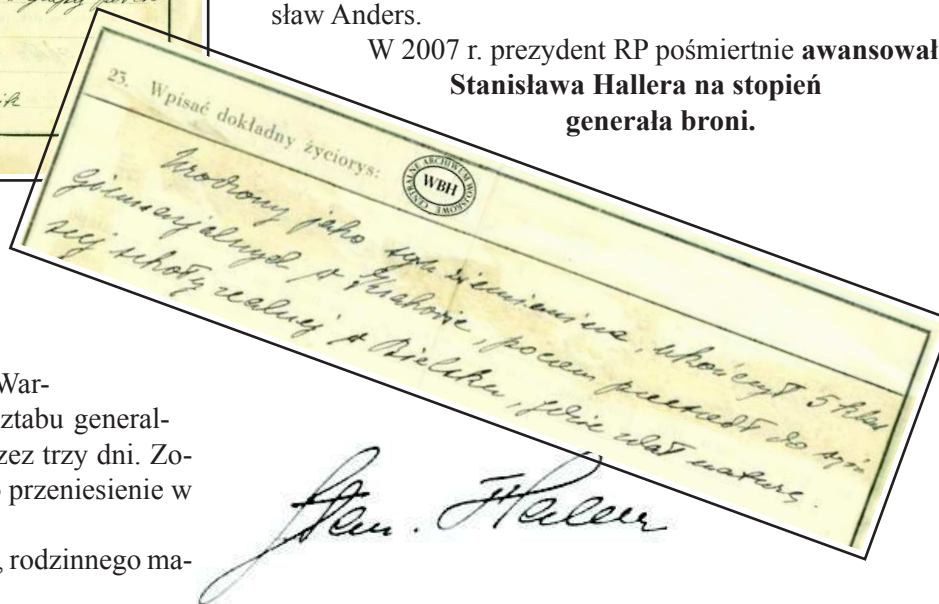 sław Anders.
W 2007 r. prezydent RP pośmiertnie awansował
Stanisława Hallera na stopień
generała broni.
23. Wpisać dokładny życiorys:
CENTRALNE ARCHIWUM WOJSKOWE
WBH
Urodzony jako syn ziemianina, ukończył 5 klas
gimnazjalnych w Krakowie, poczem przeszedł do wyż
szej szkoły realnej w Bielsku, gdzie zdał maturę.
War-
ztabu general-
zez trzy dni. Zo-
przeniesienie w
, rodzinnego ma-
Stan. Haller